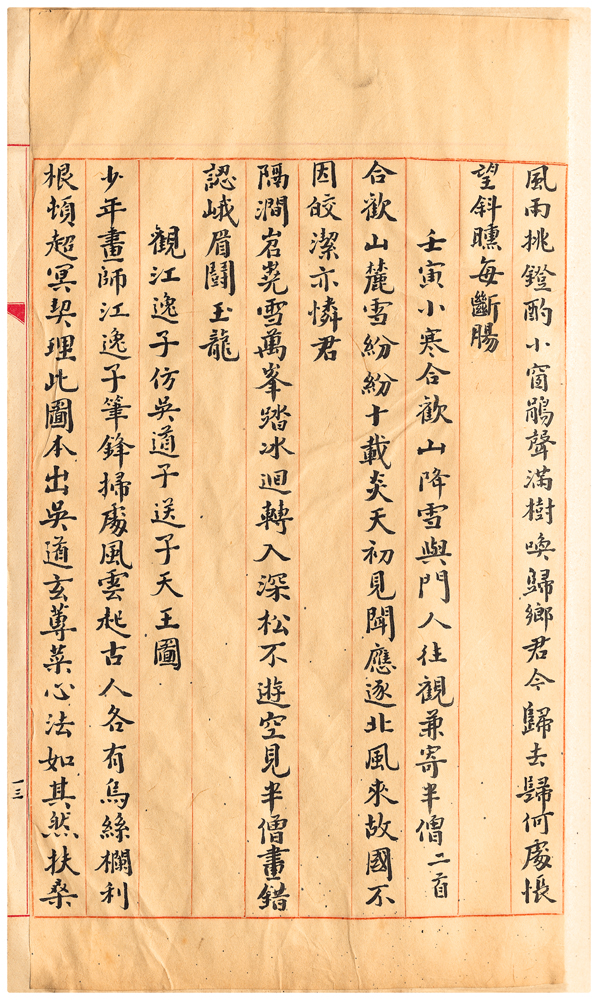 風雨挑鐙酌小窗鵑聲滿樹喚歸鄉君今歸去歸何處悵
望斜曛每斷腸
壬寅小寒合歡山降雪與門人往觀兼寄半僧二首
合歡山麓雪紛紛十載炎天初見聞應逐北風來故國不
因皎潔亦憐君
隔澗岧嶤雪萬峯踏冰迴轉入深松不遊空見半僧畫錯
認峨眉鬪玉龍
觀江逸子仿吳道子送子天王圖
少年畫師江逸子筆鋒掃處風雲起古人各有烏絲欄利
根頓超冥契理此圖本出吳道玄蓴菜心法如其然扶桑
一三